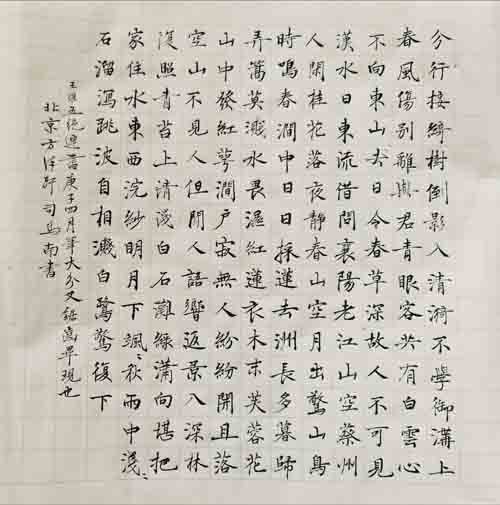 分行接綺樹倒影入清漪不學御溝上
春風傷別離與君青眼客共有白雲心
不向東山去日令春草深故人不可見
漢水日東流借問襄陽老江山空蔡州
人閑桂花落夜靜春山空月出驚山鳥
時鳴春澗中日日採蓮去洲長多暮歸
弄篙莫濺水畏濕紅蓮衣木末芙蓉花
山中發紅萼澗戶寂無人紛紛開且落
空山不見人但聞人語響返景入深林
復照青苔上清淺白石灘綠蒲向堪把
家住水東西浣紗明月下颯〻秋雨中淺〻
石溜瀉跳波自相濺白鷺驚復下
王維五絕庚子四月筆大分叉
北京方司馬南書